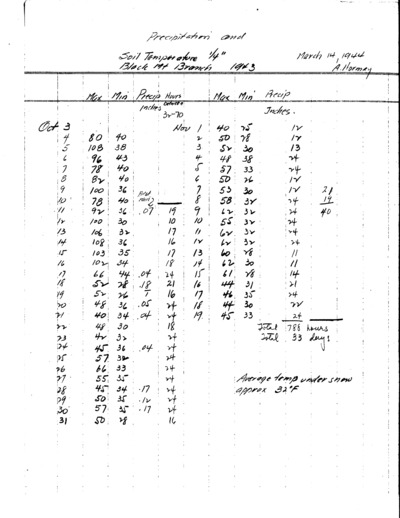 Precipitation and
Soil Temperature 1/4" March 14, 1944
Black Mt Branch 1943 A. Hormay
Max Min Precip Hours Max Min Precip
Inches between Inches.
32-70
Oct 3 Nov 1 40 25 12
4 80 40 2 50 28 12
5 108 38 3 52 30 13
6 96 43 4 48 38 24
7 78 40 5 57 33 24
8 82 40 6 50 26 12
9 100 36 7 53 30 12 21
10 78 40 8 58 32 24 19
11 92 36 .07 19 9 62 32 24 40
12 100 30 10 10 55 32 24
13 106 32 17 11 62 32 24
14 108 36 16 12 62 32 24
15 103 35 17 13 60 28 11
16 102 34 18 14 62 30 11
17 66 44 .04 24 15 61 28 14
18 52 28 .18 21 16 44 31 21
19 52 26 T 16 17 46 35 24
20 48 36 .05 24 18 44 30 22
21 40 34 .04 24 19 45 33 24
22 48 30 18 Total 788 hours
23 42 32 24 Total 33 days
24 45 36 .04 24
25 57 32 24
26 66 33 24
27 55 35 24 Average temp under snow
28 45 34 .17 24 approx 32°F
29 50 35 .12 24
30 57 35 .17 24
31 50 28 16